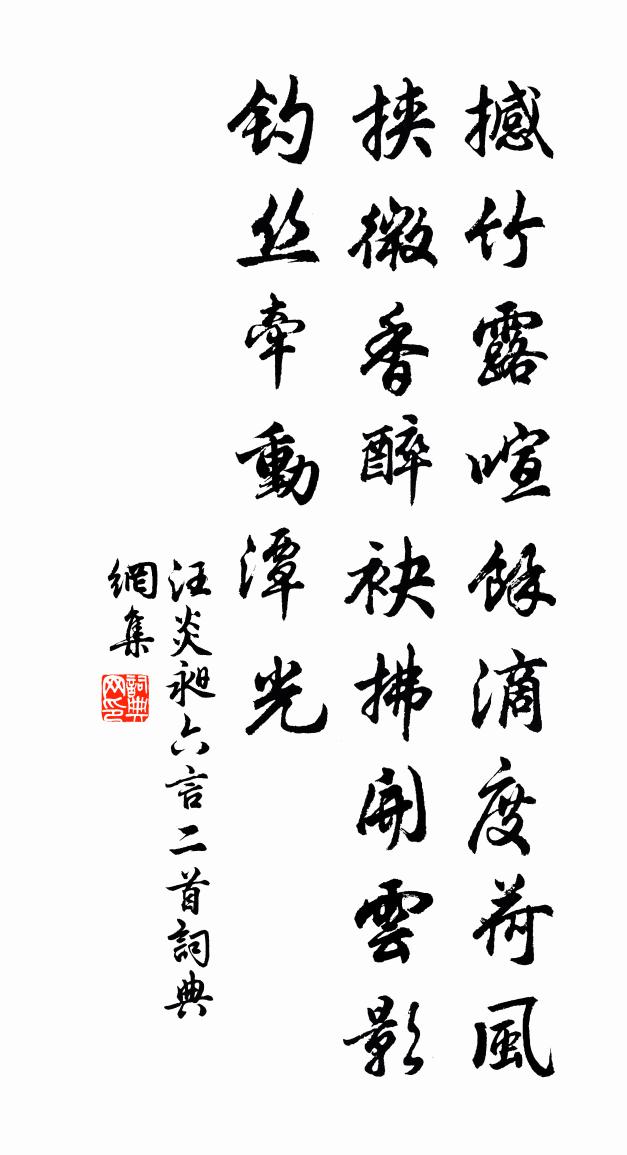 撼竹露喧餘滴度荷風
挾微香醉袂拂開雲影
釣丝牽動潭光
汪炎昶六言二首詞典
網集
詞典
网印